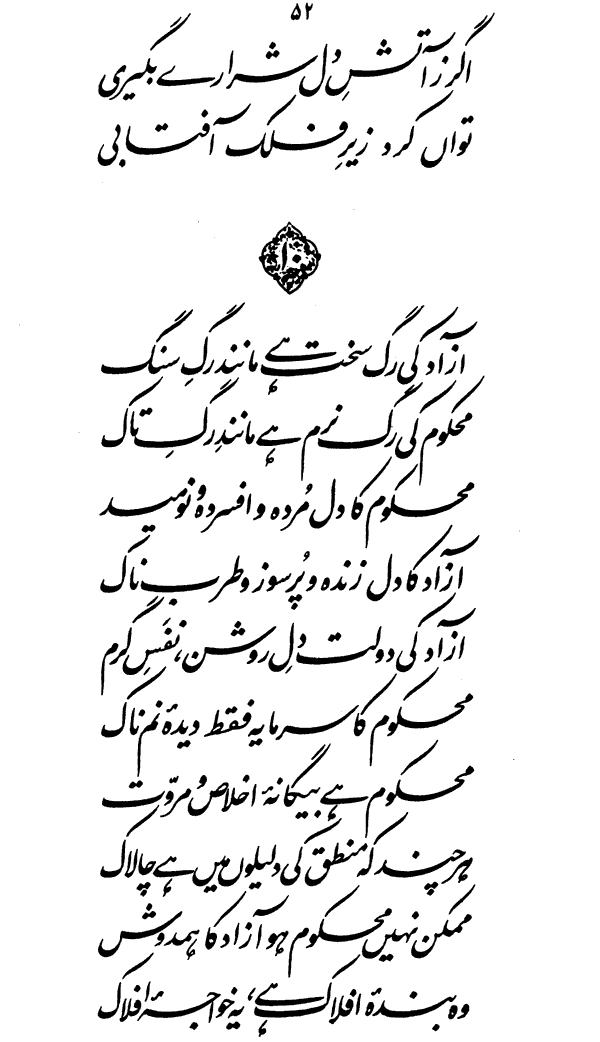 ۵۲
اگر ز آتشِ دل شرارے بگیری
تواں کرد زیرِ فلک آفتابی
۱۰
آزاد کی رگ سخت ہے مانندِ رگِ سنگ
محکوم کی رگ نرم ہے مانندِ رگِ تاک
محکوم کا دل مُردہ و افسردہ و نومید
آزاد کا دل زندہ و پُرسوز و طرب ناک
آزاد کی دولت دلِ روشن، نفَسِ گرم
محکوم کا سرمایہ فقط دیدۂ نم ناک
محکوم ہے بیگانۂ اخلاص و مروّت
ہر چند کہ منطق کی دلیلوں میں ہے چالاک
ممکن نہیں محکوم ہو آزاد کا ہمدوش
وہ بندۂ افلاک ہے، یہ خواجۂ افلاک